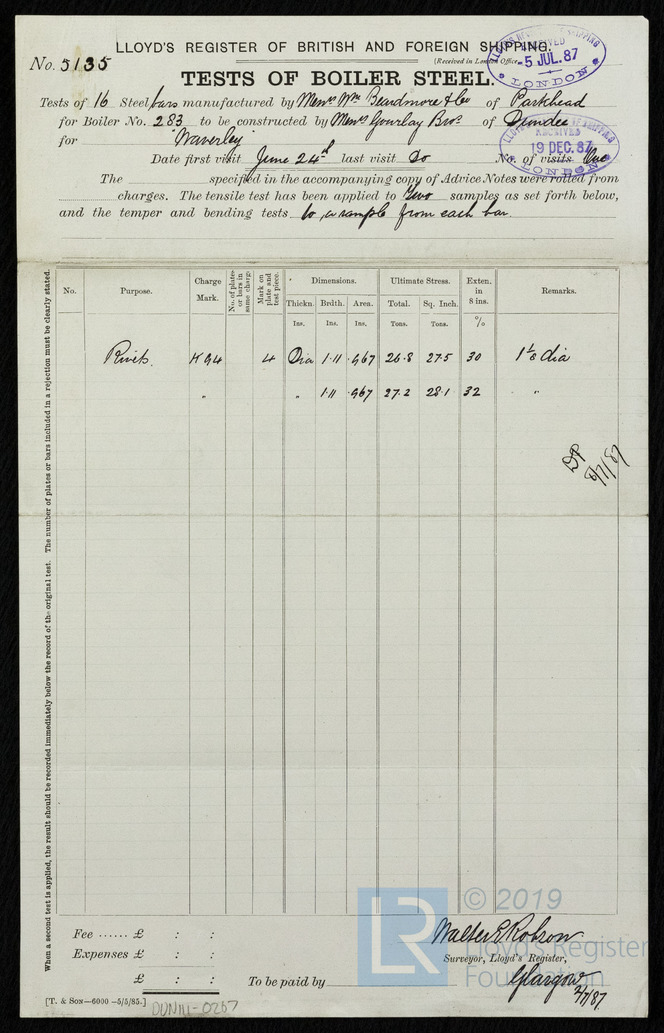 LLOYD'S REGISTER OF BRITISH AND FOREIGN SHIPPING.
No. 5135
(Received in London Office
LLOYDS REGISTER OF SHIPPING
RECEIVED
-5 JUL. 87
LONDON
TESTS OF BOILER STEEL.
Tests of 16 Steel bars manufactured by Messrs Wm Beardmore & Co of Parkhead
for Boiler No. 283 to be constructed by Messrs Gourlay Bros of Dundee
for "Waverley"
ARCHIVED
19 DEC. 87
LONDON
Date first visit June 24th last visit Do No. of visits One
The specified in the accompanying copy of Advice Notes were rolled from
charges. The tensile test has been applied to Two samples as set forth below,
and the temper and bending tests to a sample from each bar.
When a second test is applied, the result should be recorded immediately below the record of the original test. The number of plates or bars included in a rejection must be clearly stated.
No. Purpose. Charge Mark. No. of plates or bars in same charge Mark on plate and test piece. Dimensions. Ultimate Stress. Exten. in 8 ins. Remarks.
Thickn. Brdth. Area. Total. Sq. Inch.
Ins. Ins. Ins. Tons. Tons. %
Rivets. K94 4 Dia 1·11 ·967 26·8 27·5 30 1 1/8 dia
" " 1·11 ·967 27·2 28·1 32 "
8/7/87
Fee ...... £ : :
Expenses £ : :
£ : :
To be paid by
Walter E Robson
Surveyor, Lloyd's Register,
Glasgow
2/7/87.
[T. & SON—6000—5/5/85.]
DUN14-0267
LR
© 2019
Lloyd's Register
Foundation